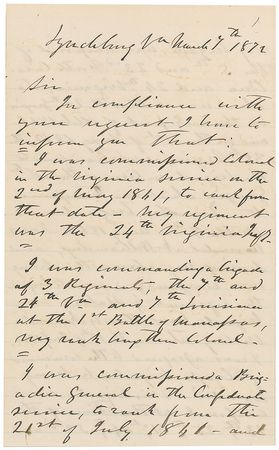 Lynchburg Va March 7th 1872
Sir
In compliance with
your request I have to
inform you that:
I was commissioned Colonel
in the Virginia service on the
2nd of May 1861, to rank from
that date - my regiment
was the 24th Virginia Inf.
I was commanding a brigade
of 3 Regiments, the 7th and
24th Va and 7th Louisiana
at the 1st Battle of Manassas,
my rank being then Colonel -
I was commissioned a Brig-
adier General in the Confederate
service, to rank from the
21st of July, 1861 - and